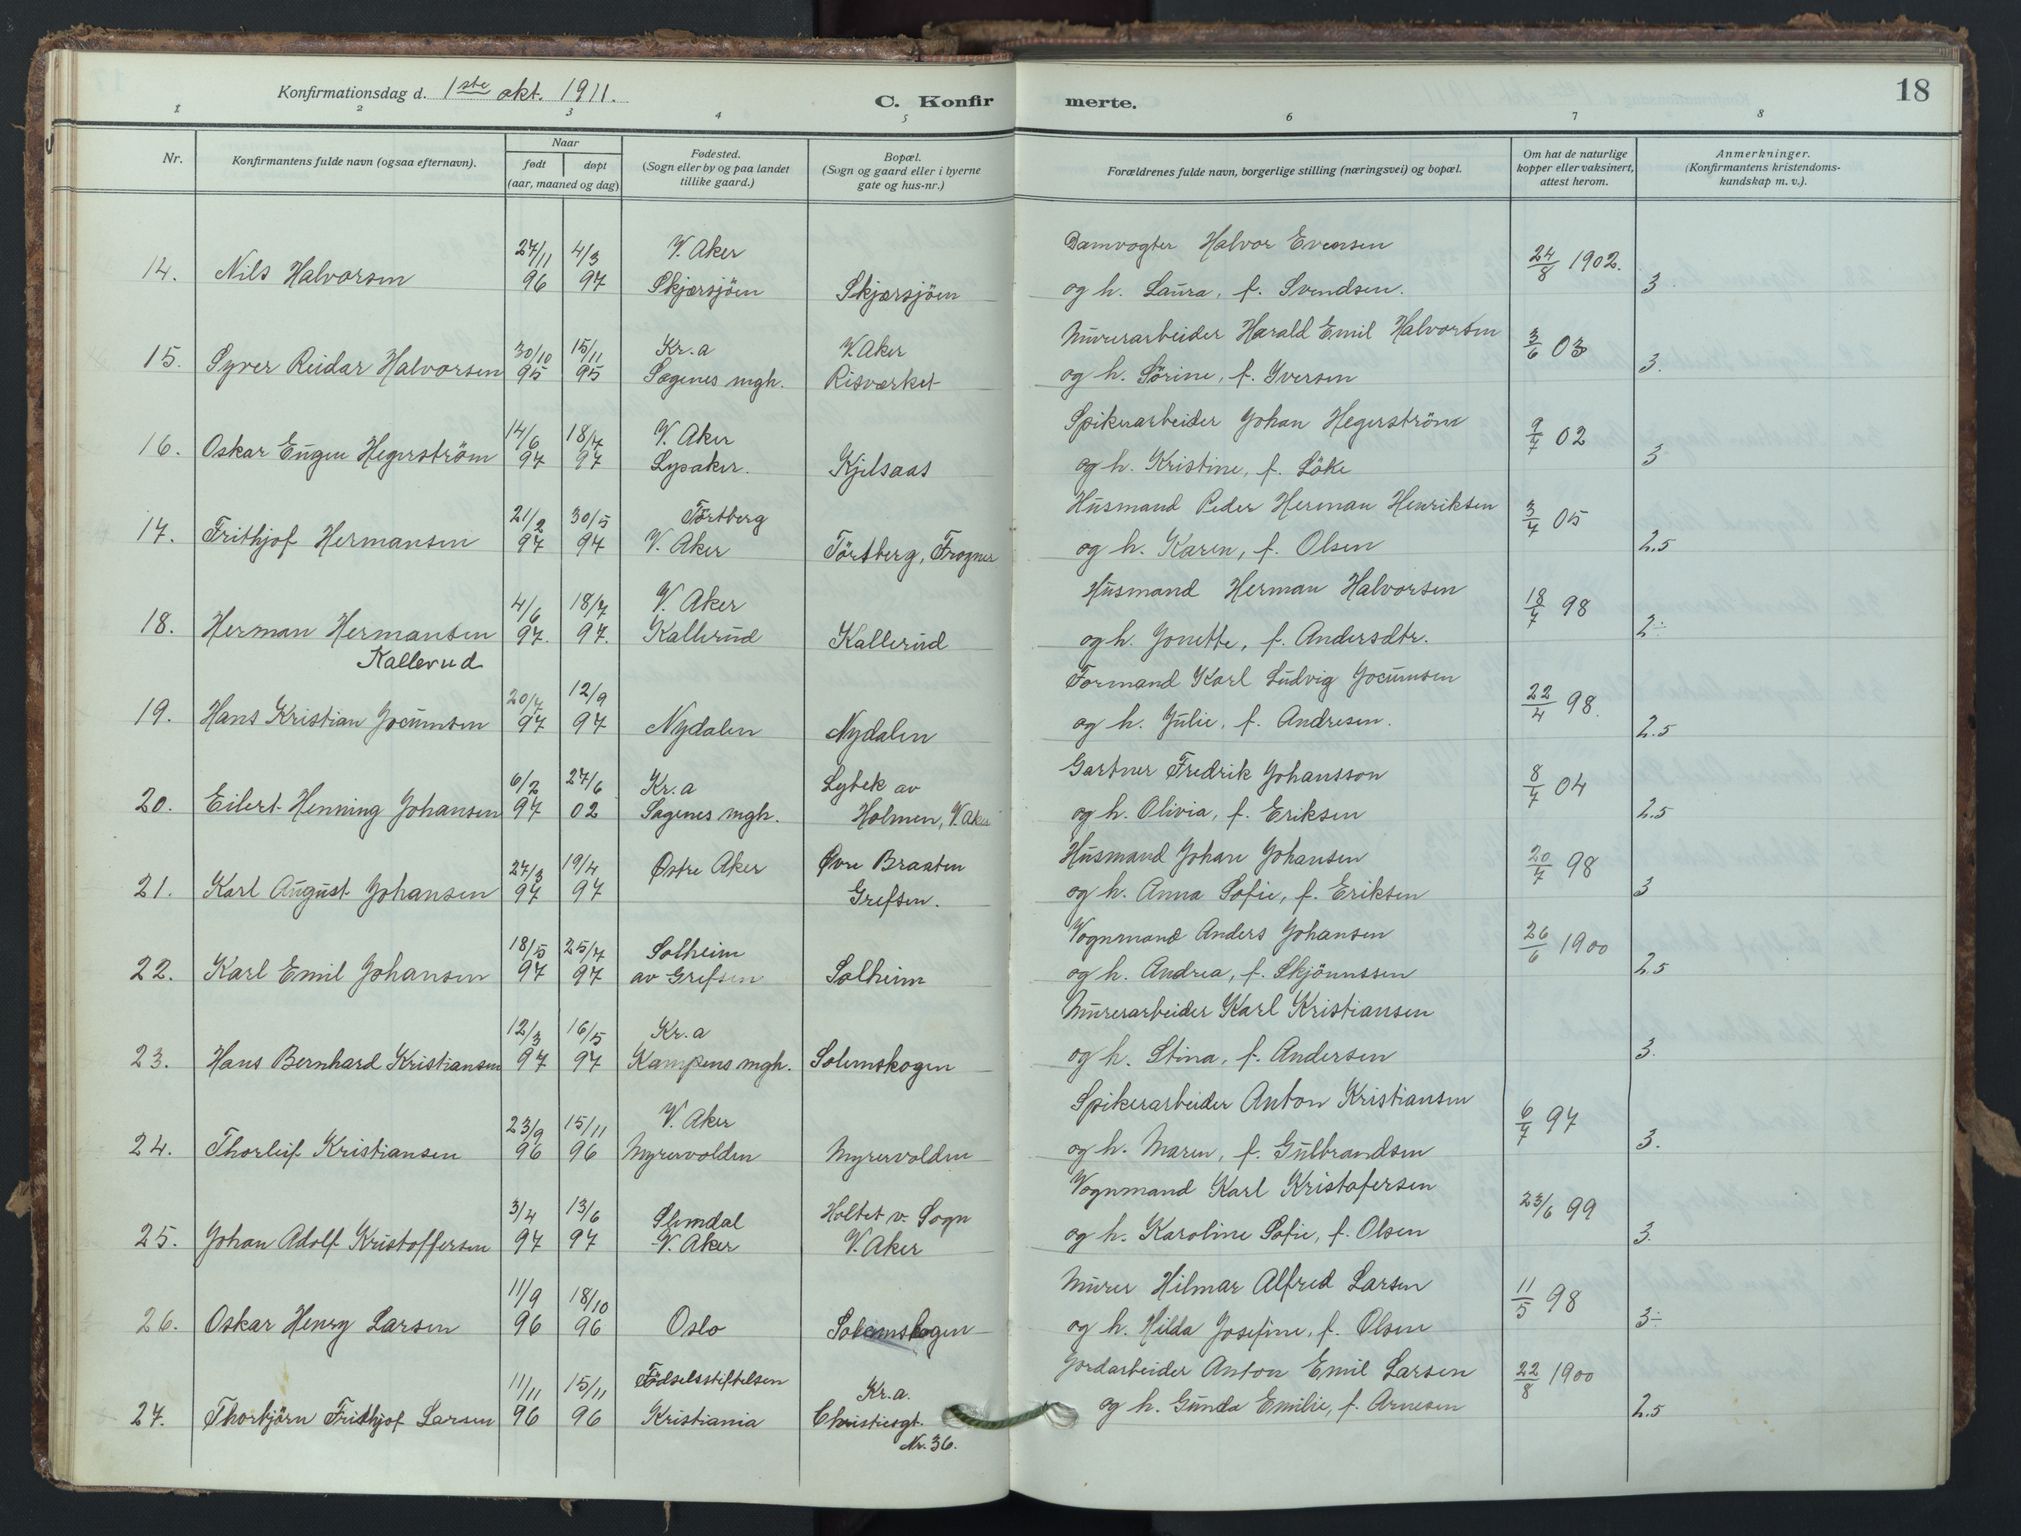 Konfirmationsdag d. 1ste okt. 1911.
C. Konfirmerte.
18
1 2 3 4 5 6 7 8
Nr.
Konfirmantens fulde navn (ogsaa efternavn).
Naar
født
døpt
(aar, maaned og dag)
Fødested.
(Sogn eller by og paa landet
tillike gaard.)
Bopæl.
(Sogn og gaard eller i byerne
gate og hus-nr.)
Forældrenes fulde navn, borgerlige stilling (næringsvei) og bopæl.
Om hat de naturlige
kopper eller vaksinert,
attest herom.
Anmerkninger.
(Konfirmantens kristendoms-
kundskap m. v.).
27/11 4/3 V. Aker Damvogter Halvor Evensen 24/8 1902.
14. Nils Halvorsen 96 97 Skjærsjöen Skjærsjöen og h. Laura, f. Svendsen. 3
30/10 15/11 Kr.a V. Aker Murerarbeider Harald Emil Halvorsen 3/6 03
15. Syver Reidar Halvorsen 95 95 Sagenes mgh. Risværket og h. Sörine, f. Iversen 3.
14/6 18/7 V. Aker Spikerarbeider Johan Hegerström 9/7 02
16. Oskar Eugen Hegerström 97 97 Lysaker. Kjelsaas og h. Kristine, f. Löke 3
21/2 30/5 Törtberg Husmand Peder Herman Henriksen 3/7 05
17. Frithjof Hermansen 97 97 V. Aker Törtberg, Frogner og h. Karen, f. Olsen 2.5
4/6 18/7 V. Aker Husmand Herman Halvorsen 18/7 98
18. Herman Hermansen 97. 97. Kallerud Kallerud og h. Jonette, f. Andersdtr. 2÷
Kallerud
20/7 12/9 Formand Karl Ludvig Jocumsen 22/4 98.
19. Hans Kristian Jocumsen 97 97 Nydalen Nydalen og h. Julie, f. Andresen. 2.5
6/2 27/6 Kr.a Lybek av Gartner Fredrik Johansson 8/7 04
20. Eilert Henning Johansen 97 02 Sagenes mgh. Holmen, V. Aker og h. Olivia, f. Eriksen 2.5
27/3 19/4 Østre Aker Øvre Braaten Husmand Johan Johansen 20/7 98
21. Karl August Johansen 97 97 Grefsen. og h. Anna Sofie, f. Eriksen 3
18/5 25/7 Solheim Vognmand Anders Johansen 26/6 1900
22. Karl Emil Johansen 97 97 av Grefsen Solheim og h. Andrea, f. Skjönnssen 2.5
12/3 16/5 Kr.a Murerarbeider Karl Kristiansen
23. Hans Bernhard Kristiansen 97 97 Kampens mgh. Solemskogen og h. Stina, f. Andersen 3.
23/9 15/11 V. Aker Spikerarbeider Anton Kristiansen 6/7 97
24. Thorleif Kristiansen 96 96 Myrervolden Myrervolden og h. Maren, f. Gulbrandsen 3.
3/4 13/6 Slemdal Holtet v. Sogn Vognmand Karl Kristofersen 23/6 99
25. Johan Adolf Kristoffersen 97 97 V. Aker V. Aker og h. Karoline Sofie, f. Olsen 3.
11/9 18/10 Murer Hilmar Alfred Larsen 11/5 98
26. Oskar Henry Larsen 96 96 Oslo Solemskogen og h. Hilda Josefine, f. Olsen 3÷
11/11 15/11 Födselsstiftelsen Kr.a. Jordarbeider Anton Emil Larsen 22/8 1900
27. Thorbjörn Frithjof Larsen 96 96 Kristiania Christiesgt. og h. Gunda Emilie, f. Arnesen 2.5
Nr. 36.